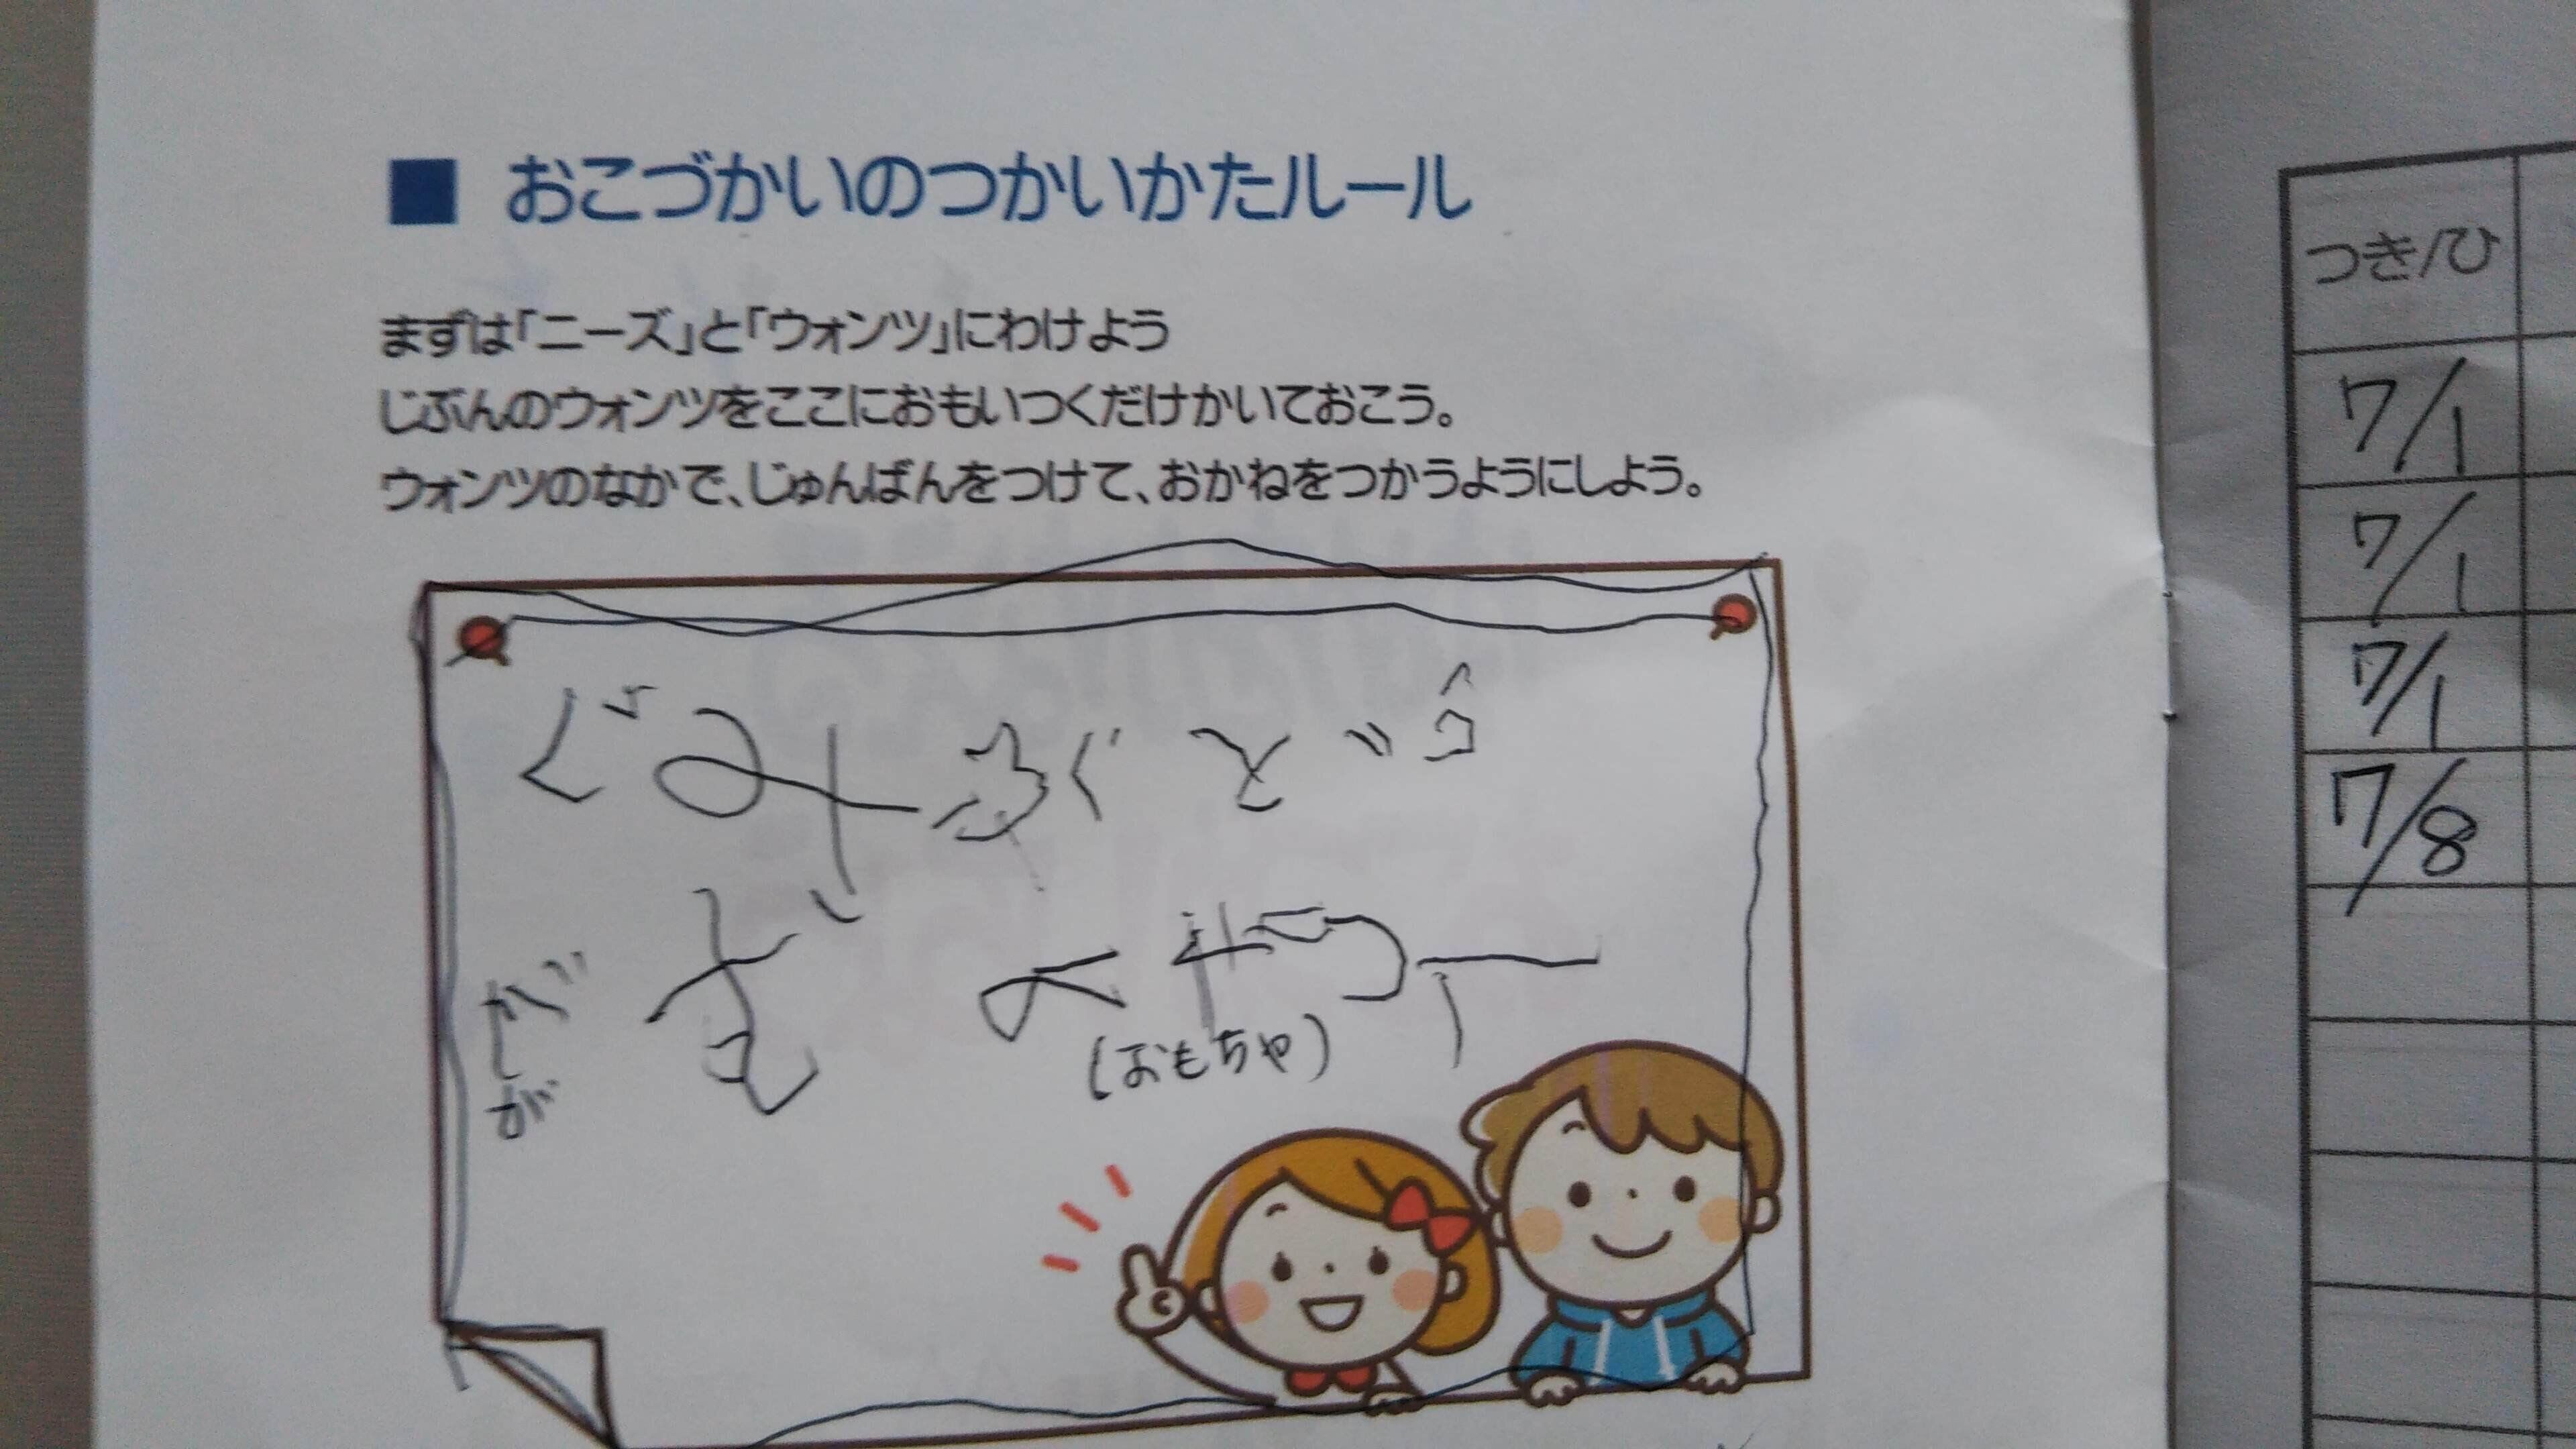 ■ おこづかいのつかいかたルール
まずは「ニーズ」と「ウォンツ」にわけよう
じぶんのウォンツをここにおもいつくだけかいておこう。
ウォンツのなかで、じゅんばんをつけて、おかねをつかうようにしよう。
ぐみ
(おもちゃ)
つき/ひ
7/1
7/1
7/1
7/8